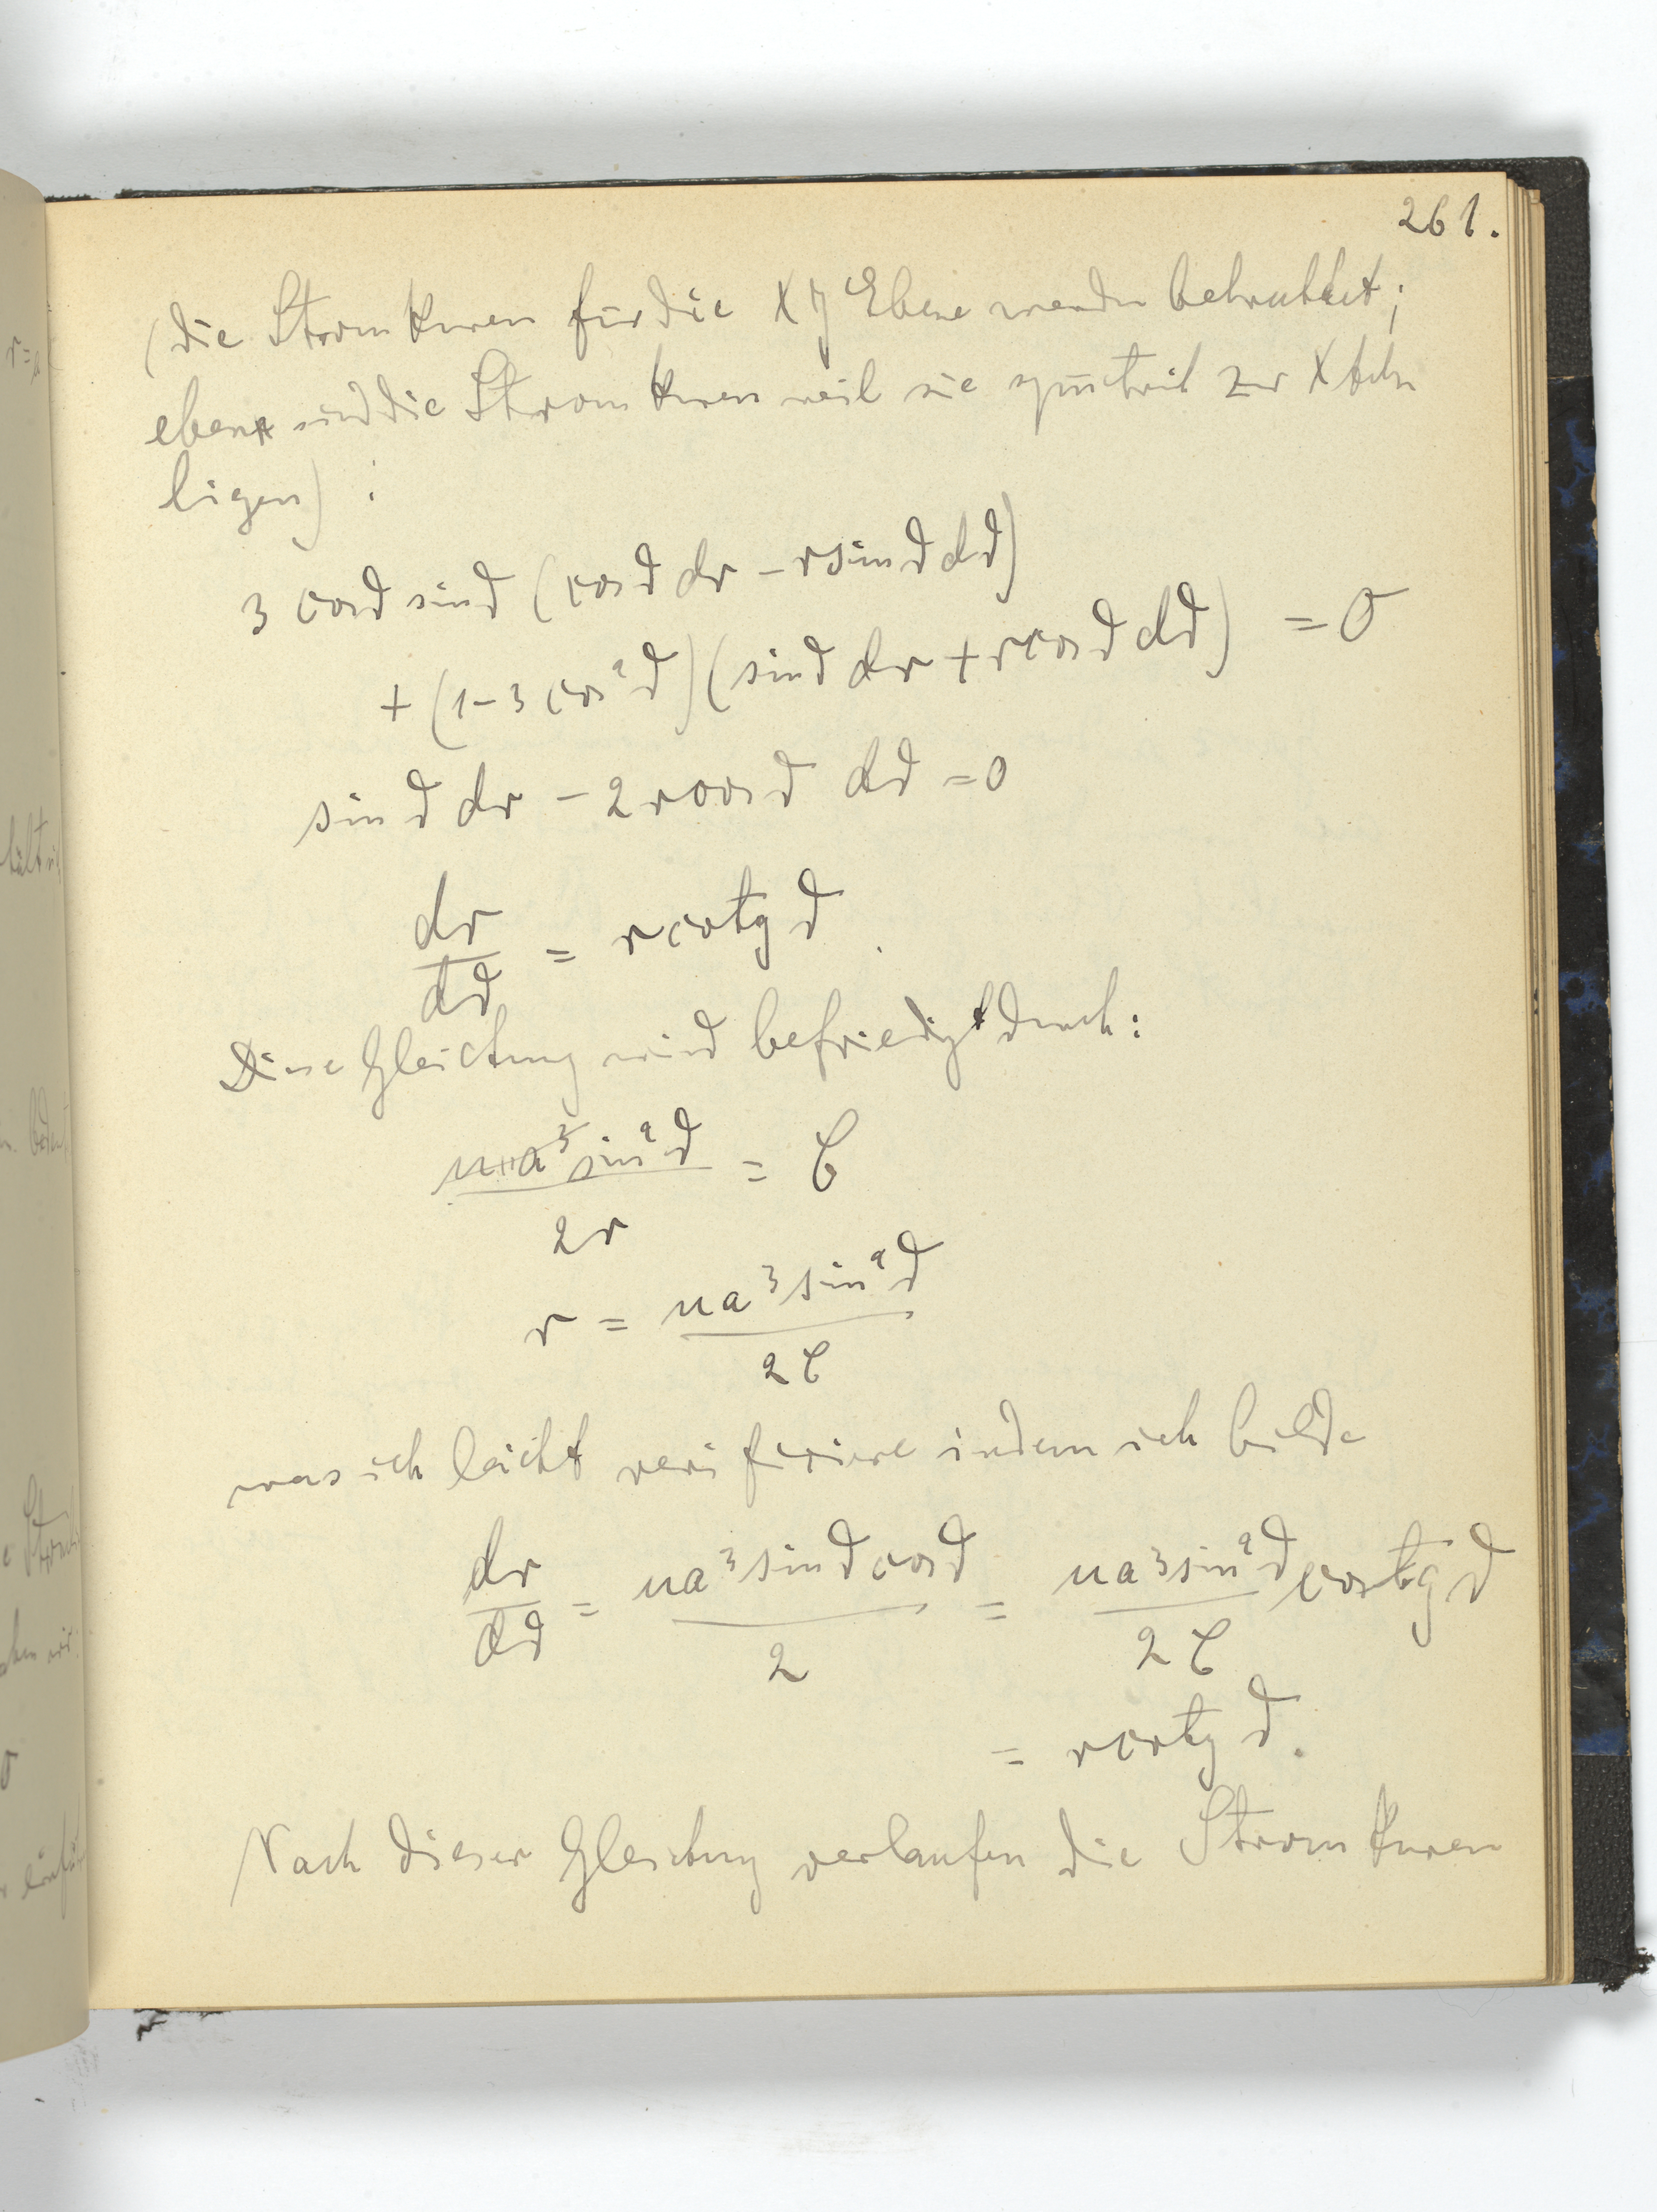 261.
(die Stromkurven für die XY Ebene werden betrachtet;
eben sind die Stromkurven weil sie symetrisch zur X Achse
ligen) :
3 cos ϑ sin ϑ (cos ϑ dr – r sin ϑ dϑ)
+ (1–3 cos²ϑ)(sin ϑ dr + r cos ϑ dϑ) = 0
sin ϑ dr – 2 r cos ϑ dϑ = 0
dr/dϑ = r cotg ϑ.
Diese Gleichung wird befriedigt durch:
ua³ sin²ϑ / 2r = C
r = ua³ sin²ϑ / 2C
was ich leicht verifiziere indem ich bilde
dr/dϑ = ua³ sin ϑ cos ϑ / 2 = ua³ sin²ϑ / 2C cotg ϑ
= r cotg ϑ.
Nach dieser Gleichung verlaufen die Stromkurven